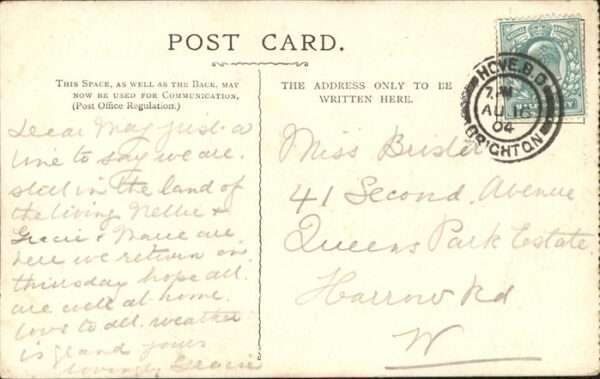 POST CARD.
THIS SPACE, AS WELL AS THE BACK, MAY
NOW BE USED FOR COMMUNICATION,
(Post Office Regulation.)
Dear May just a
line to say we are
still in the land of
the living Nellie &
Gracie & are
here we return on
thursday hope all
are well at home.
love to all. weather
is grand yours
lovingly
THE ADDRESS ONLY TO BE
WRITTEN HERE.
Miss
41 Second Avenue
Queens Park Estate
Harrow Rd
W
HOVE. B.O.
7 PM
AU 16
04
BRIGHTON